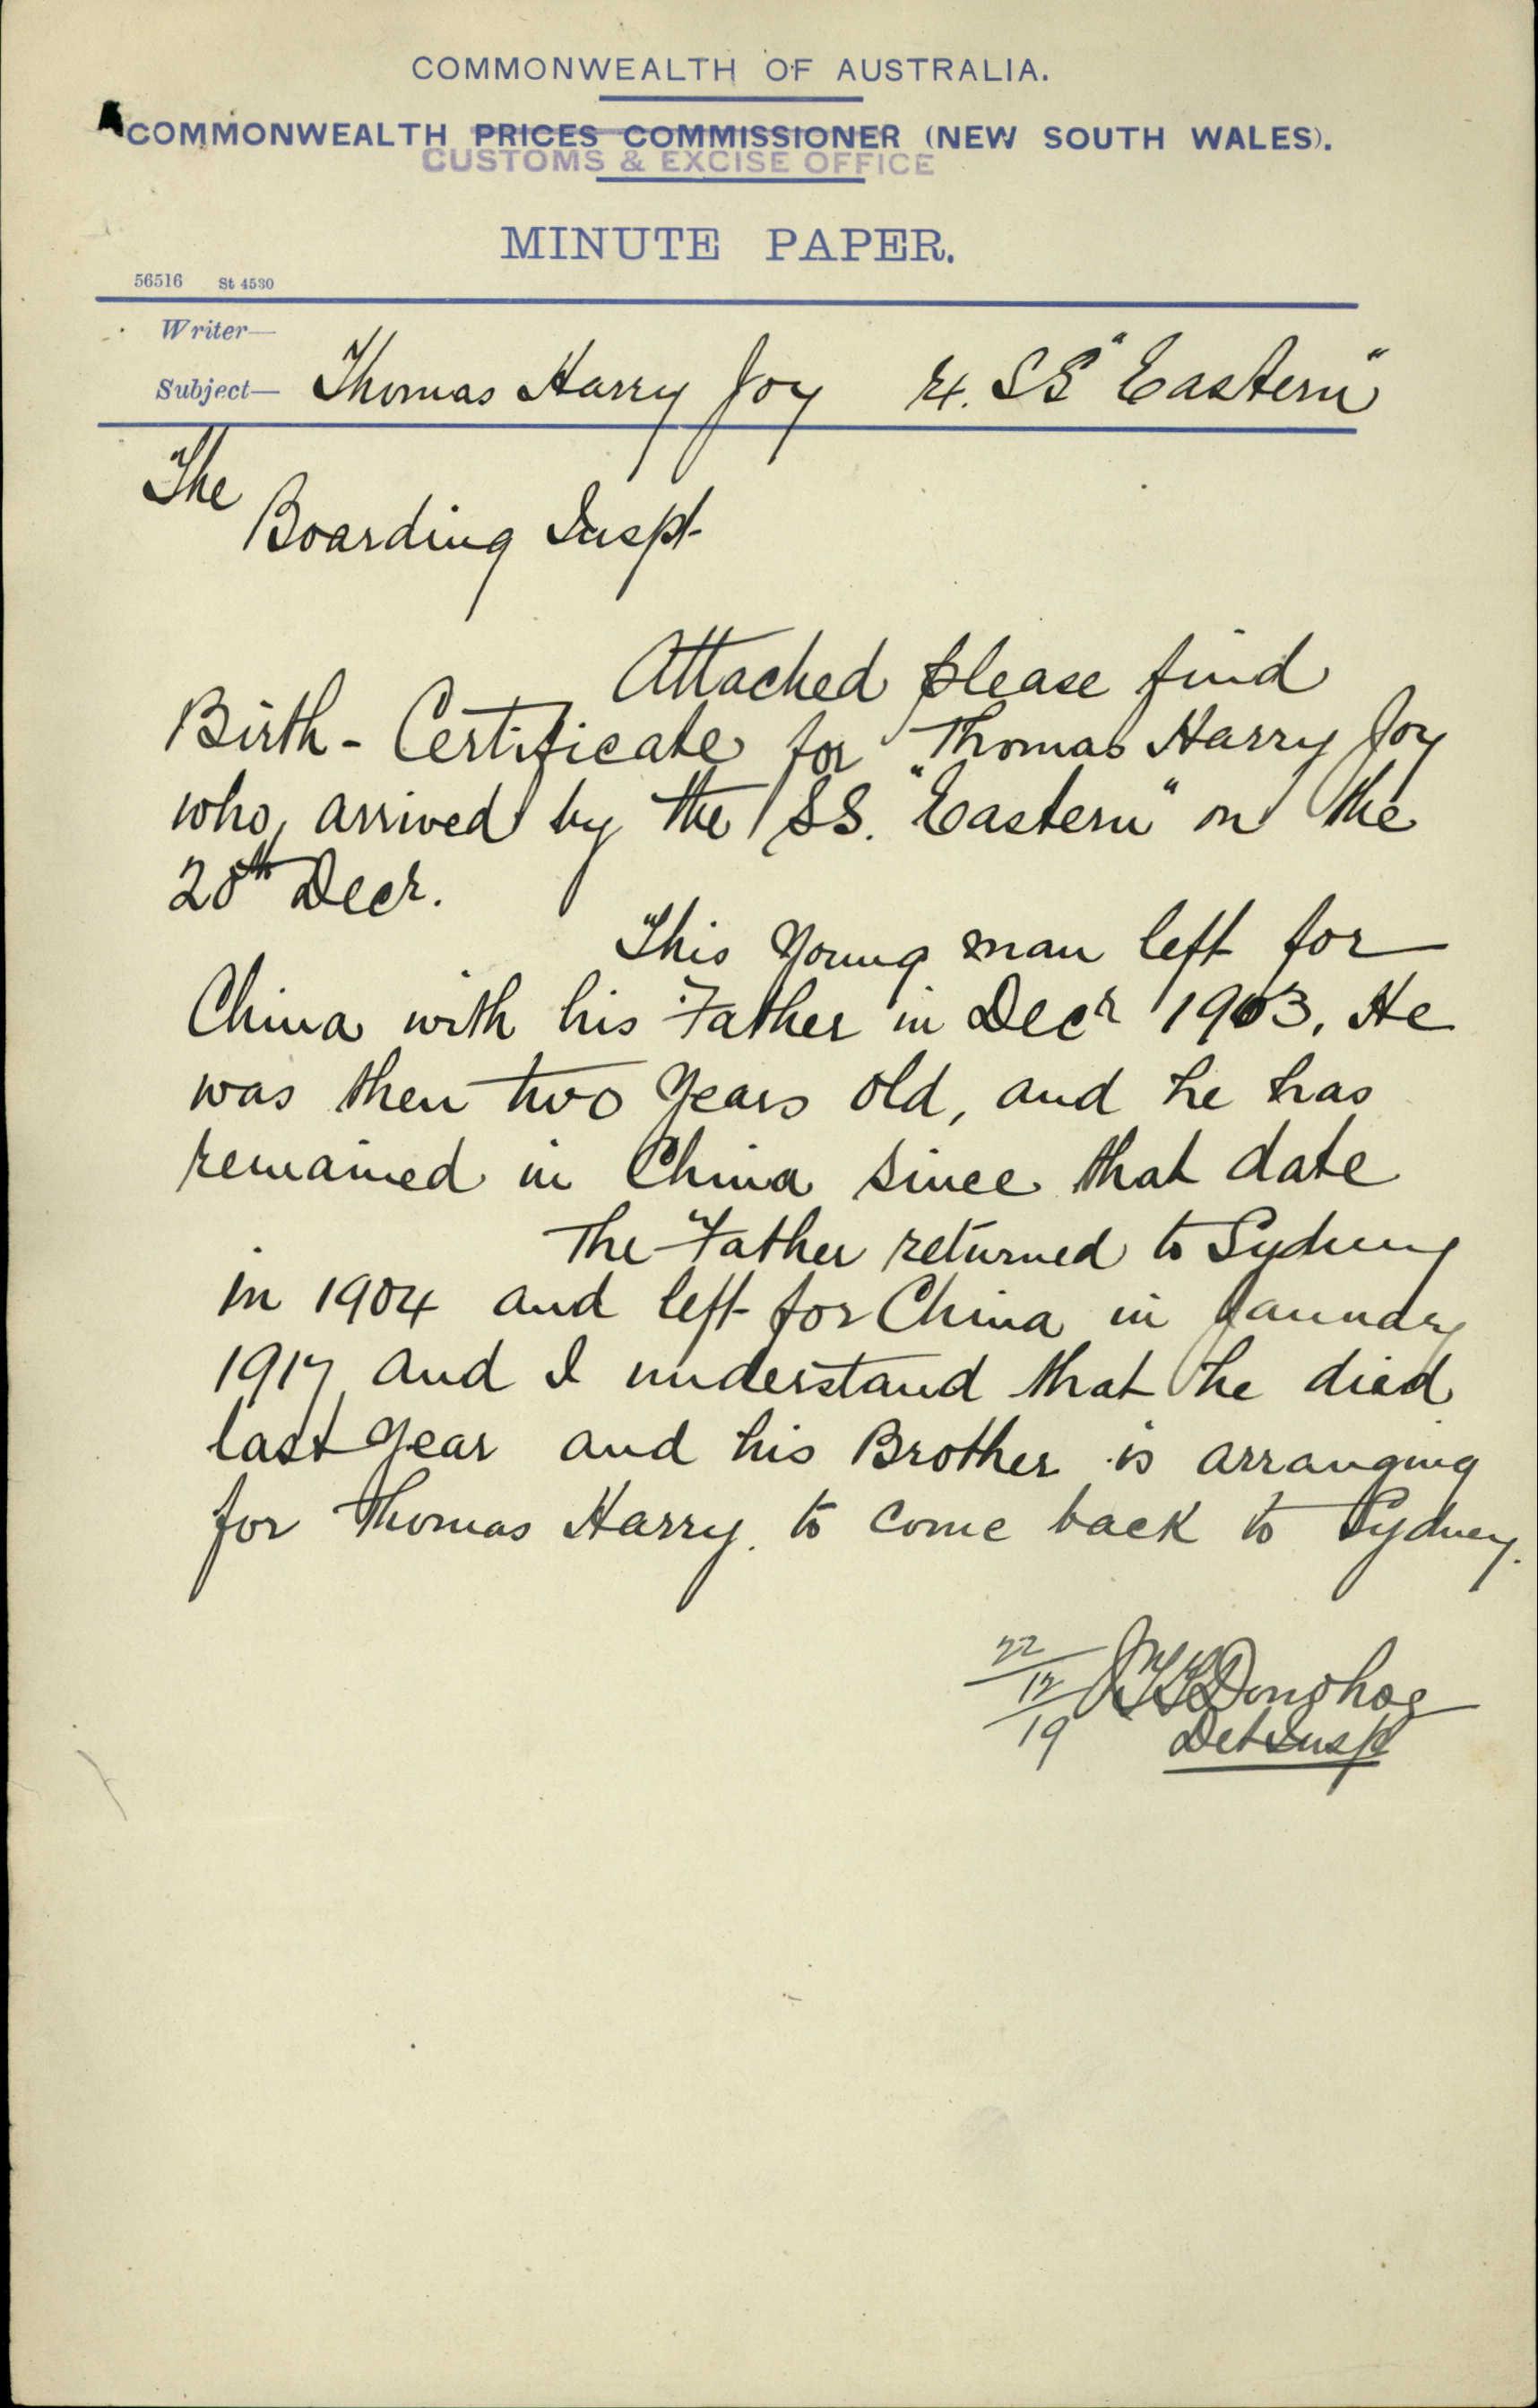 COMMONWEALTH OF AUSTRALIA.
COMMONWEALTH PRICES COMMISSIONER (NEW SOUTH WALES).
CUSTOMS & EXCISE OFFICE
MINUTE PAPER.
56516 St 4530
Writer—
Subject— Thomas Harry Joy SS "Eastern"
The
Boarding Inspt
Attached please find
Birth-Certificate for Thomas Harry Joy
who arrived by the SS. "Eastern" on the
20th Decr.
This young man left for
China with his Father in Decr 1903. He
was then two years old, and he has
remained in China since that date
The Father returned to Sydney
in 1904 and left for China in January
1917 and I understand that he died
last year and his Brother is arranging
for Thomas Harry to come back to Sydney.
22/12/19 Donohoe
Det Inspt